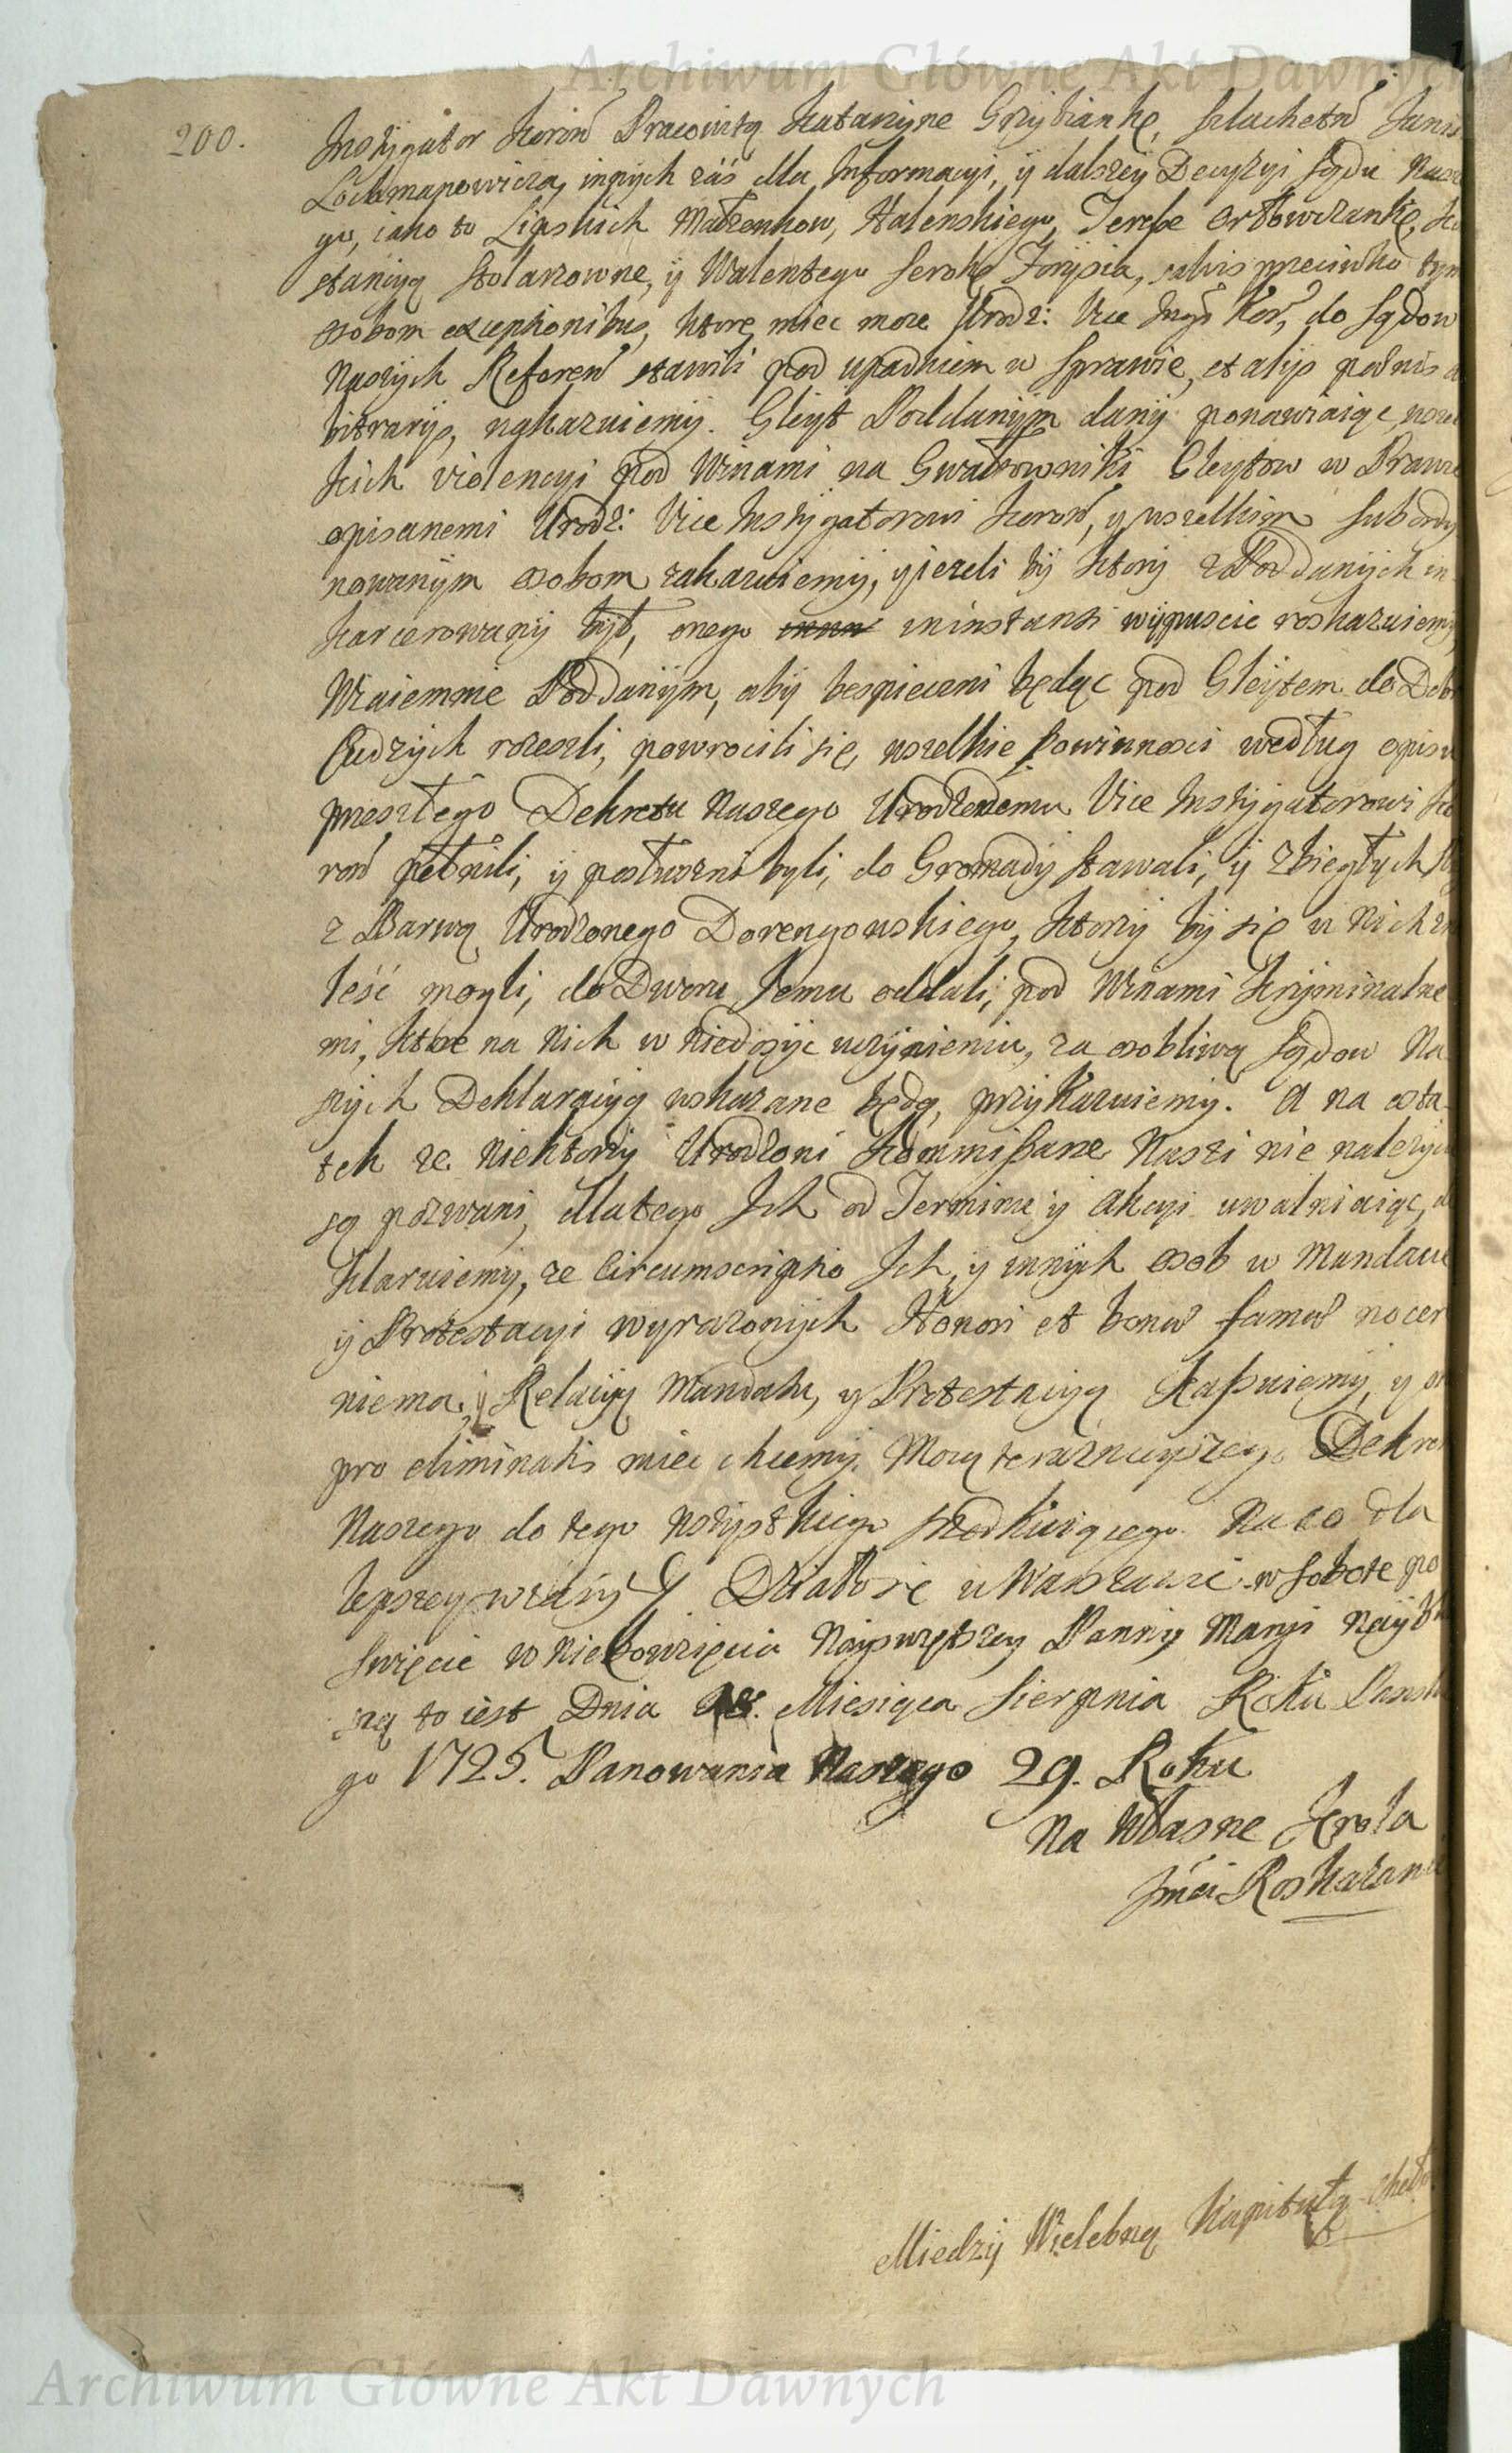 Archiwum Główne Akt Dawnych
200.
Instÿgator Koroñ Pracowitą Katarzÿnę Grzÿbiankę, szlachetñ Jana
Lochmanowicza, innych zaś dla Informacÿi, ÿ dalszeÿ Decyzÿi sądu Nasze
go, iako to Lipskich Małzonkow, Halenskiego, Teresse Orłowczankę, Ko
stancÿą Stolarzowne, ÿ Walentego przeciwko tÿm
osobom exceptionibus, ktore miec moze Urodz: Vice Insÿ Kor, do Sądow
Naszÿch Referen stawili pod upadkiem w Sprawie, et alÿs pœnis a
bitrarÿs, nakazuiemÿ. Gleÿt Poddanÿm danÿ ponawiaiąc, wszel
kich violencÿi pod Winami na Gwałtowniki Gleÿtow w Prawie
opisanemi Urodz: Vice Instÿgatorowi Koroñ, y wszelkim subordÿ
nowanÿm osobom zakazuiemÿ, y iezeli bÿ ktorÿ z Poddanÿch in
karcerowanÿ bÿł, onego ininstanti wÿpuscic roskazuiemÿ,
Wzaiemnie Poddanÿm, abÿ bespieczni będąc pod Gleÿtem do Dobr
Cudzÿch rozeszli, powrocili się, wszelkie Powinnosci według opisu
przeszłego Dekretu Naszego Urodzonemu Vice Instÿgatorowi Ko
roñ pełnili, ÿ posłuszni byli, do Gromadÿ stawali, ÿ zbiegłÿch
z Barwą Urodzonego Dorengowskiego, ktorzÿ bÿ się u Nich zna
leść mogli, do Dworu Jemu oddali, pod Winami krÿminalne
mi, ktore na Nich w niedosÿc uczÿnieniu, za osobliwą Sądow Na
szÿch Deklaracÿą wskazane będą, przÿkazuiemÿ. A na osta
tek ze niektorzÿ Urodzoni Kommissarze Naszi nie nalezÿcie
są pozwani, dlatego Ich od Terminu ÿ Akcÿi uwalniaiąc, de
klaruiemÿ, ze circumscriptio Ich, ÿ innÿch osob w Mandacie
ÿ Protestacÿi wyrazonÿch Honori et bonæ famæ nocere
niema, Relacÿą Mandatu, y Protestacÿą Kassuiemÿ, y
pro eliminatis miec chcemÿ. Mocą teraznieÿszego Dekretu
Naszego do tego wszÿstkiego Na co dla
lepszeÿ wiarÿ Działo się w Warszawie w sobotę po
święcie wNiebowzięcia Naÿświętszeÿ Pannÿ Marÿi
szą to iest Dnia 18. Miesiąca Sierpnia Roku Panskie
go 1725. Panowania Naszego 29. Roku
Na własne Krola
Jmci Roskazanie
Miedzÿ Wielebną Kapitułą
Archiwum Główne Akt Dawnych